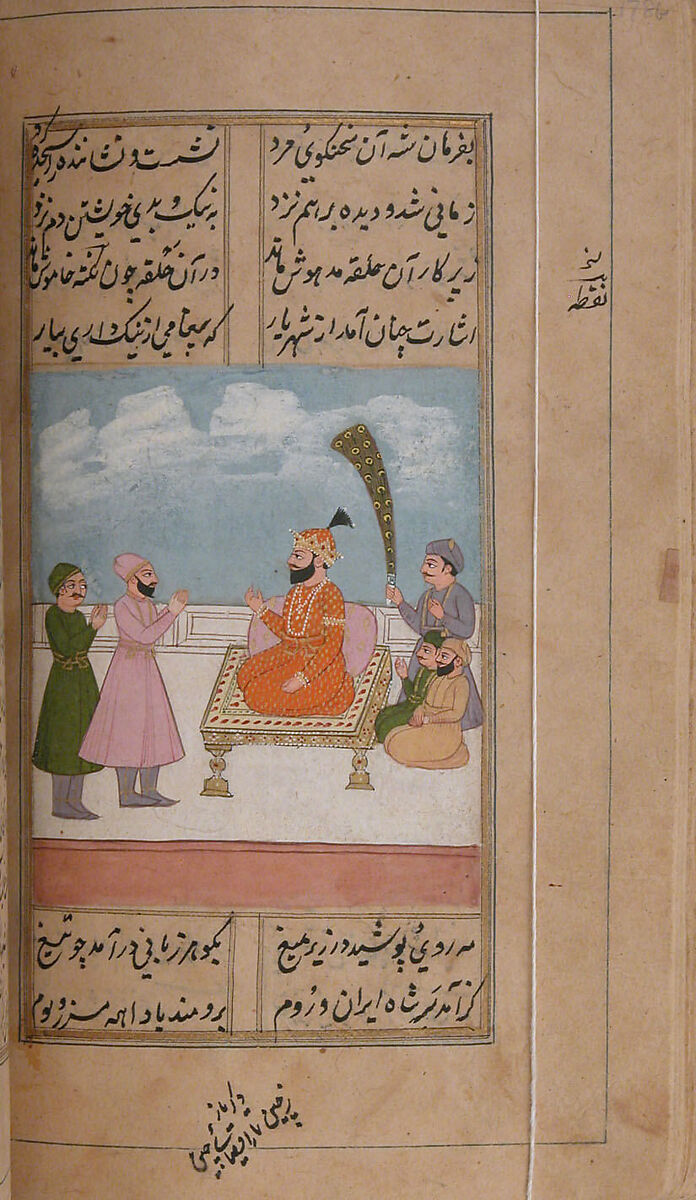 بفرمان شه آن سخنکوی مرد نشست و نشاننده را سجده کرد
زمانی شد و دیده برهم نزد به نیک و بدی خویشتن دم نزد
زپرکار آن حلقه مدهوش ماند در آن حلقه چون نکته خاموش ماند
اشارت چنان آمد از شهریار که پیغامی از نیک داری بیار
نقطه
مه روی پوشید در زیر میغ بکوهر زبانی درآمد چو تیغ
کز آمد بر شاه ایران و روم برومند بادا همه مرز و بوم